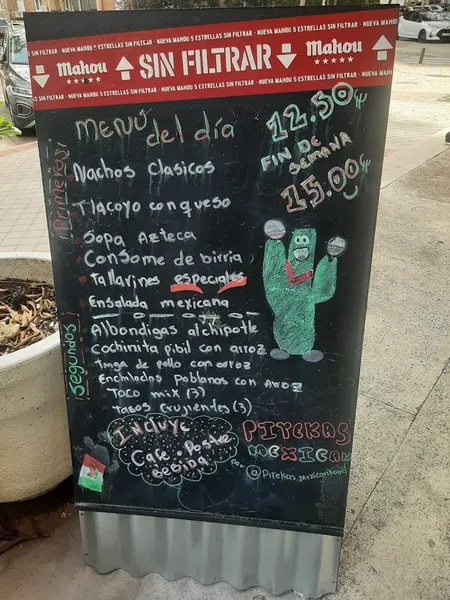 SIN FILTRAR - NUEVA MAHOU 5 ESTRELLAS SIN FILTRAR - NUEVA MAHOU 5 ESTRELLAS SIN FILTRAR - NUEVA MAHOU 5 ESTRELLAS SIN FILTRAR
Mahou SIN FILTRAR Mahou
SIN FILTRAR - NUEVA MAHOU 5 ESTRELLAS SIN FILTRAR - NUEVA MAHOU 5 ESTRELLAS SIN FILTRAR - NUEVA MAHOU 5 ESTRELLAS SIN FILTRAR
MENÚ del día
12.50€
FIN DE SEMANA
15.00€
Primeros:
Nachos Clasicos
Tlacoyo con queso
Sopa Azteca
Consome de birria
Tallarines especiales
Ensalada mexicana
Segundos
Albondigas al chipotle
Cochinita pibil con arroz
Tinga de pollo con arroz
Enchiladas Poblanas con Arroz
Taco mix (3)
Tacos Crujientes (3)
INCLUYE
Cafe o Postre
BEBIDA
PITEKAS
MEXICAN
@Pitekas.mexicanfood